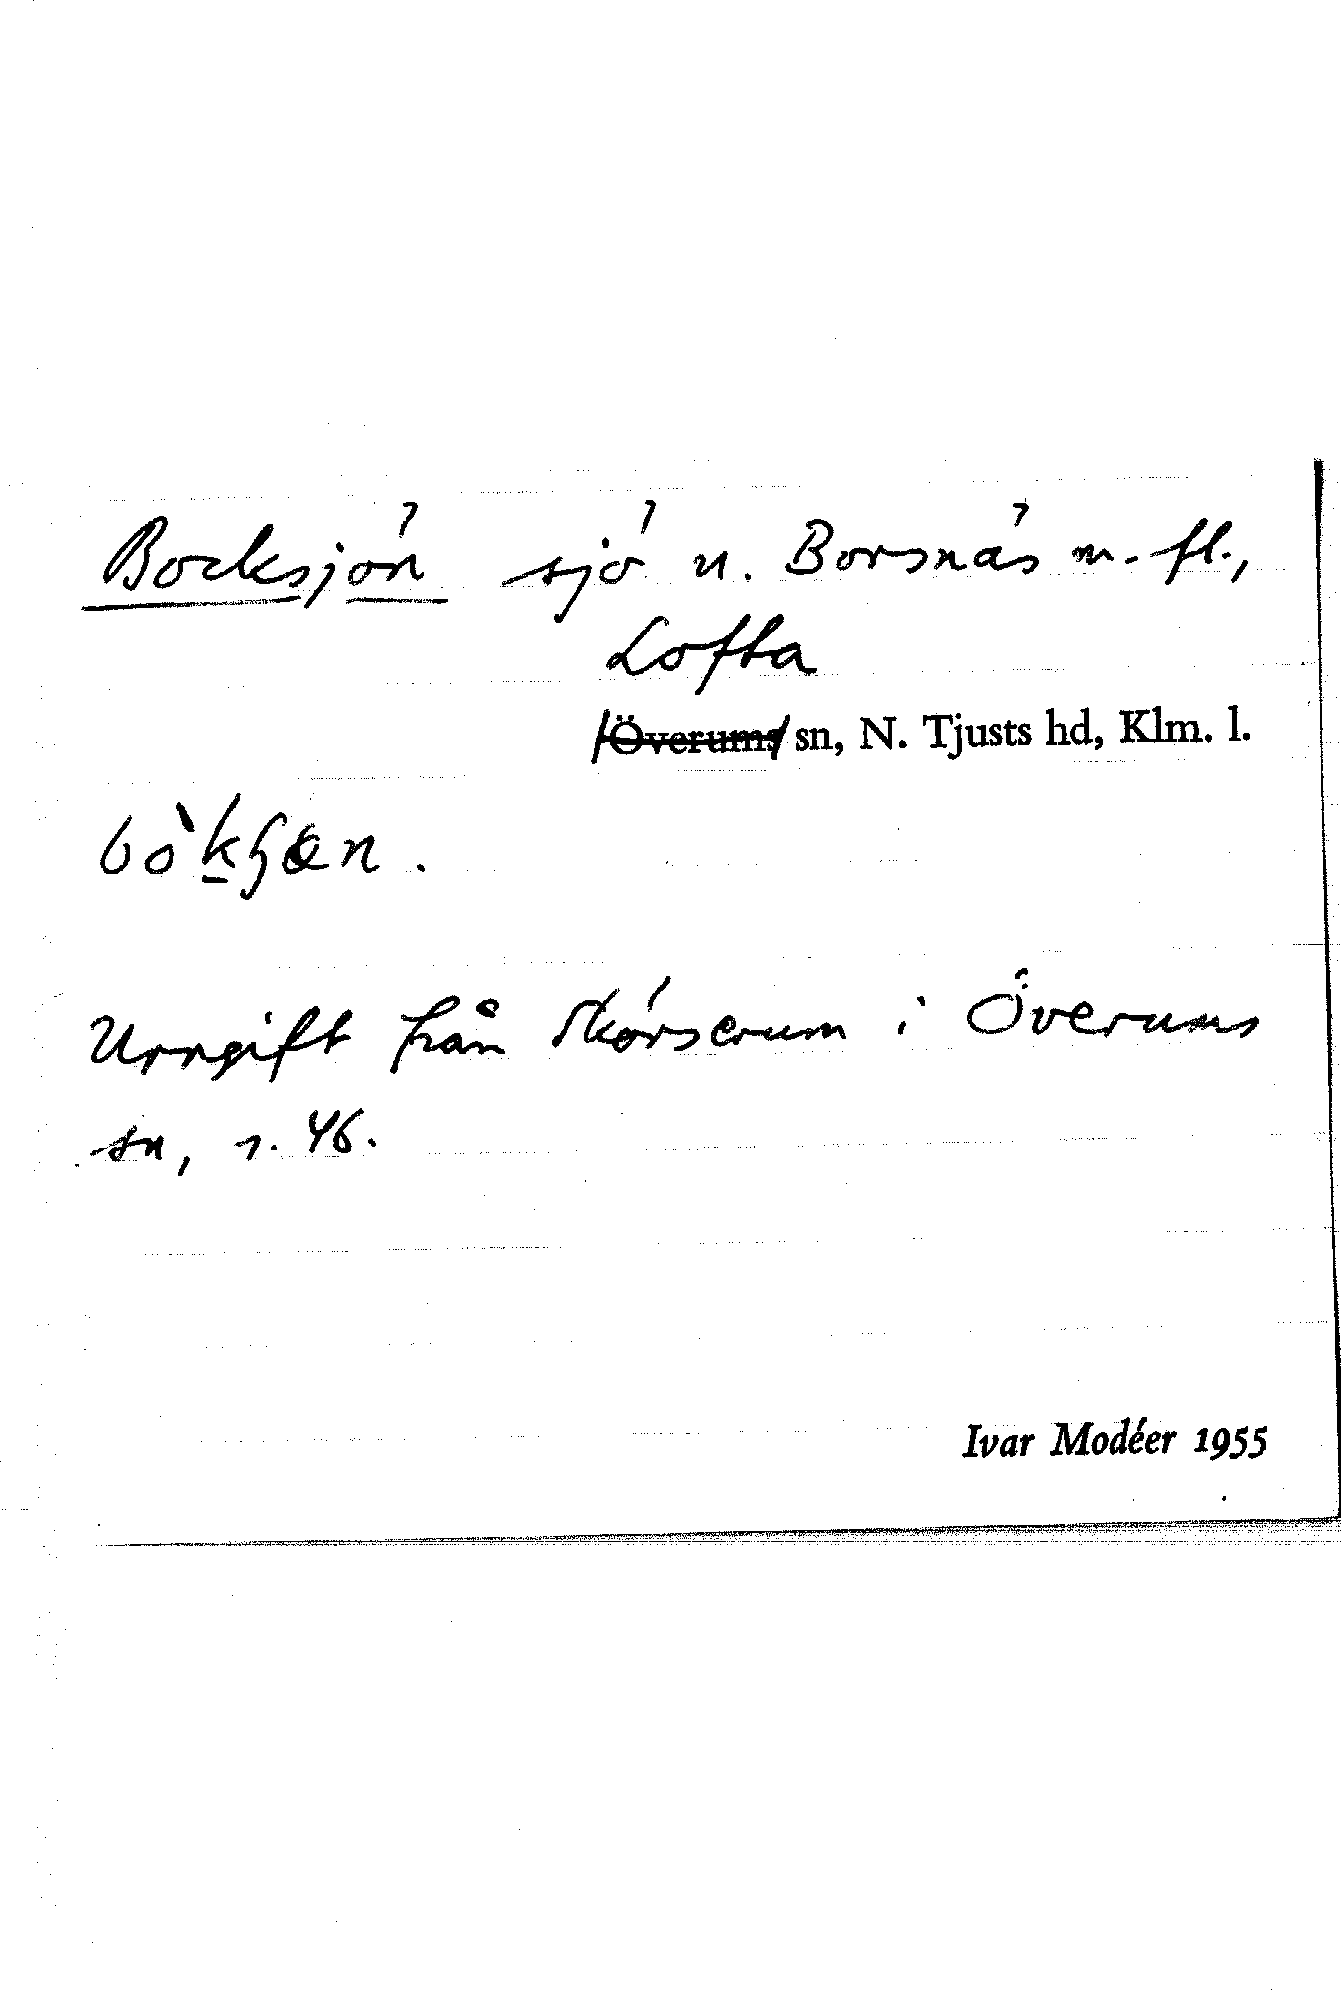 Bocksjön sjö n. Borsnäs m. fl.,
Lofta
/Överums/ sn, N. Tjusts hd, Klm. l.
Uppgift från Skörserum i Överums
sn, r. 46.
Ivar Modéer 1955